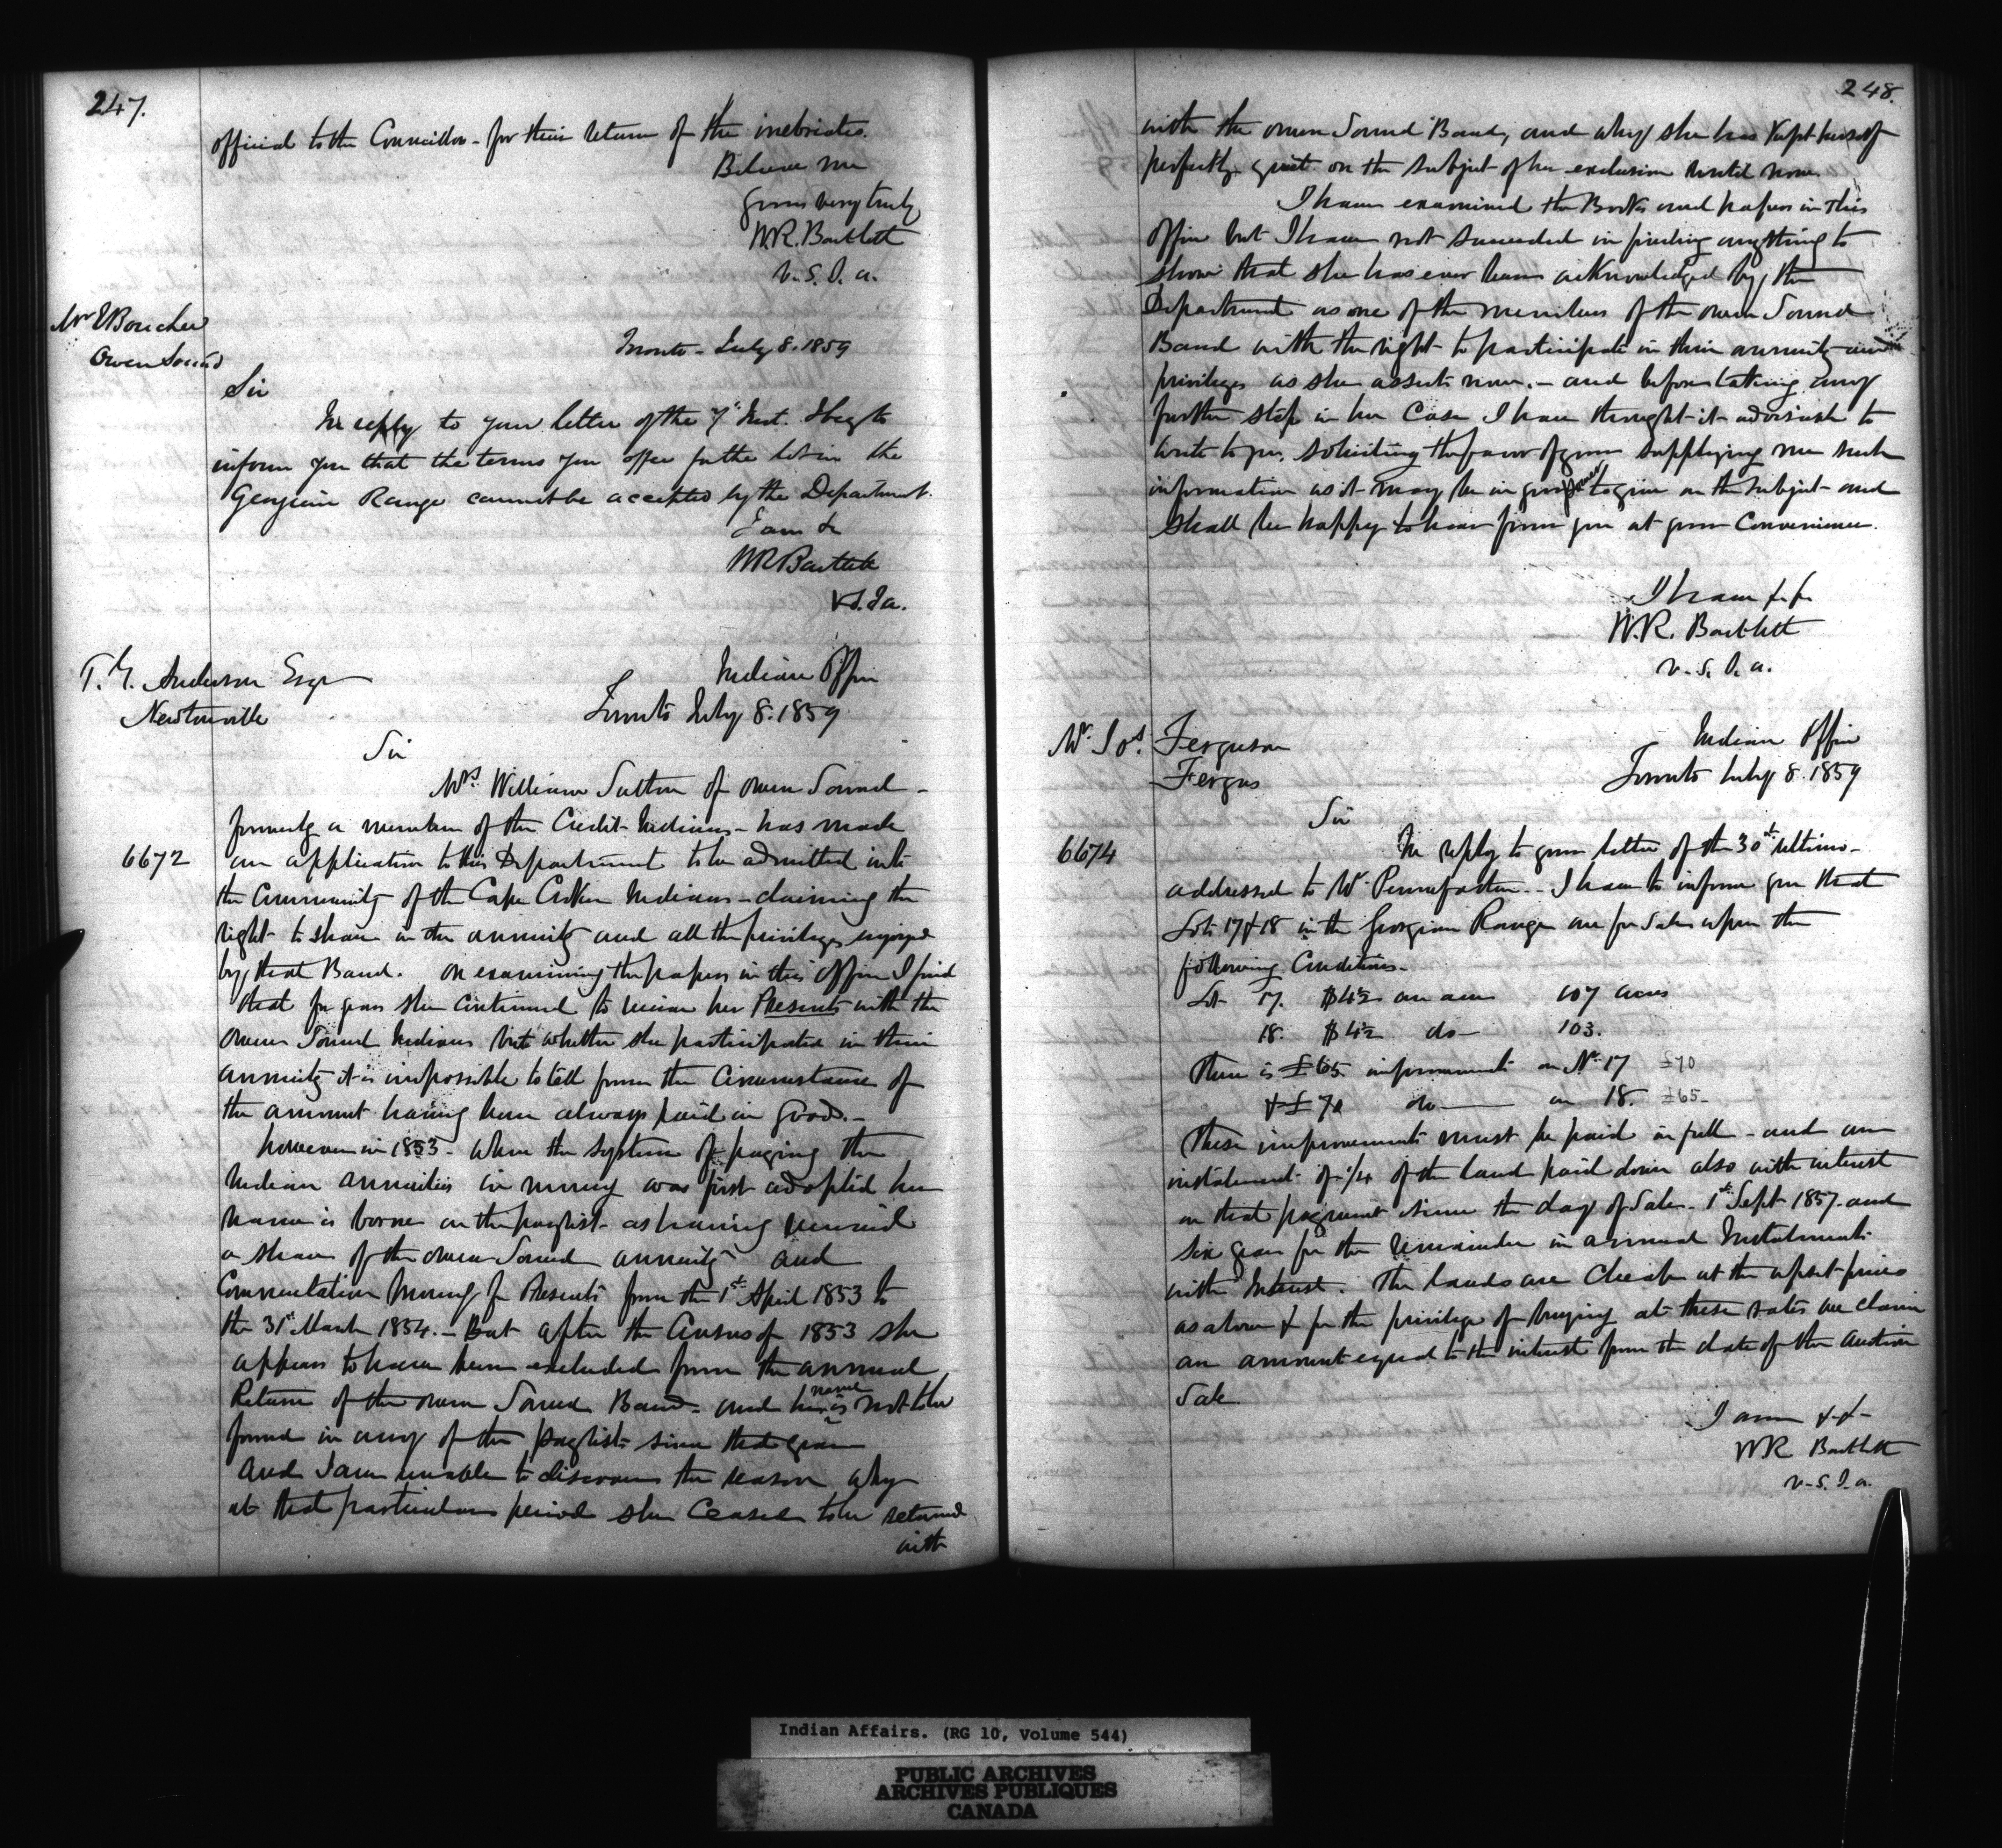 247.
official to the Councillors - for their return of the inebriates.
Believe me
yours very truly
W.R. Bartlett
V.S.I.A.
Mr Boucher
Owen Sound
Toronto - July 8. 1859
Sir
In reply to your letter of the 7th Inst. I beg to
inform you that the terms you offer for the lots in the
Georgian Range cannot be accepted by the Department.
I am &
WR Bartlett
V.S.I.a.
T. G. Anderson Esqr
Newtonville
Indian Office
Toronto July 8. 1859
Sir
Mrs. William Sutton of Owen Sound -
formerly a member of the Credit Indians - has made
6672
an application to this Department to be admitted into
the Community of the Cape Croker Indians - claiming the
right to share in the annuity and all the privileges enjoyed
by that Band. On examining the papers in this Office I find
that for years she continued to receive her Presents with the
Owen Sound Indians but whether she participated in their
annuity it is impossible to tell from the Circumstance of
the amount having been always paid in goods. -
however in 1853 - when the system of paying the
Indian annuities in money was first adopted her
name is borne on the paylist as having received
a share of the Owen Sound annuity and
Commutation Money for Presents from the 1st April 1853 to
the 31st March 1854. - But after the Census of 1853 she
appears to have been excluded from the annual
Return of the Owen Sound Band - and her name is not to be
found in any of the paylists since that year
and I am unable to discover the reason why
at that particular period she ceased to be returned
with
248.
with the Owen Sound Band, and why she has kept herself
perfectly quiet on the subject of her exclusion until now.
I have examined the Books and papers in this
Office but I have not succeeded in finding anything to
show that she has ever been acknowledged by the
Department as one of the members of the Owen Sound
Band with the right to participate in their annuity and
privileges as she asserts now. - and before taking any
further step in her Case I have thought it advisable to
write to you, soliciting the favor of your supplying me such
information as it may be in your power to give on the subject and
shall be happy to hear from you at your Convenience.
I have &c &c
W.R. Bartlett
V.S.I.a.
Mr. Jos. Ferguson
Fergus
Indian Office
Toronto July 8. 1859
Sir
6674
In reply to your letter of the 30th ultimo -
addressed to Mr Pennefather - I have to inform you that
Lots 17 & 18 in the Georgian Range are for Sale upon the
following Conditions -
Lot 17. $4½ an acre 107 acres
18. $4½ do - 103.
There is £65 improvements on No 17 £70
& £70 do - on 18. £65 -
These improvements must be paid in full - and an
instalment of ¼ of the land paid down also with interest
on that payment since the day of Sale - 1st Sept 1857. and
six years for the remainder in annual Instalments
with Interest. The lands are Cheap at the upset prices
as above & for the privilege of buying at these rates we claim
an amount equal to the interest from the date of the auction
Sale
I am &c&c -
WR Bartlett
V.S.I.a.
Indian Affairs. (RG 10, Volume 544)
PUBLIC ARCHIVES
ARCHIVES PUBLIQUES
CANADA